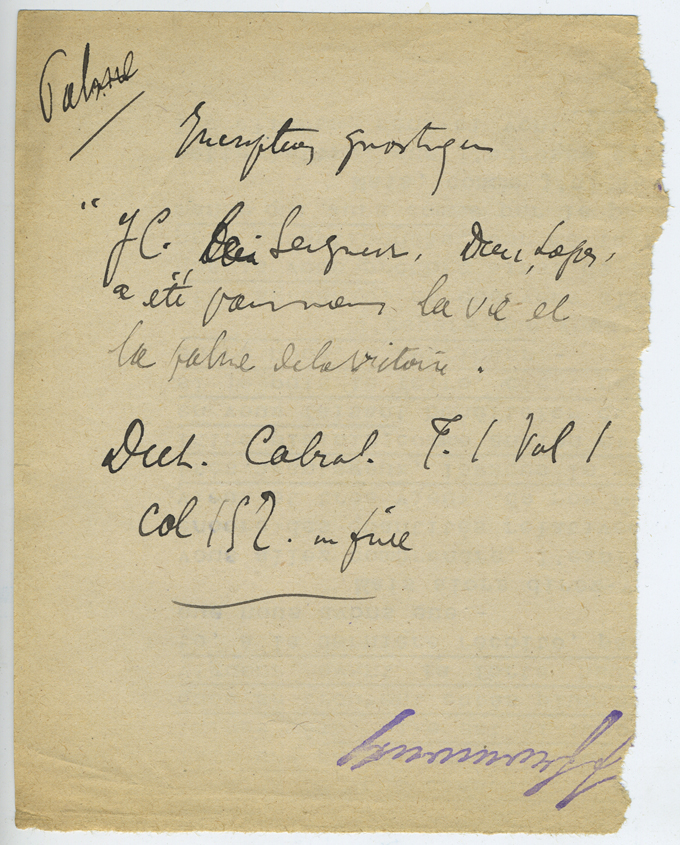 Palme
Inscription gnostique
" J C. Seigneur, Dieu,
a été pour nous la vie et
la palme de la victoire.
Dict. Cabrol. T. 1 Vol 1
col 152. in fine